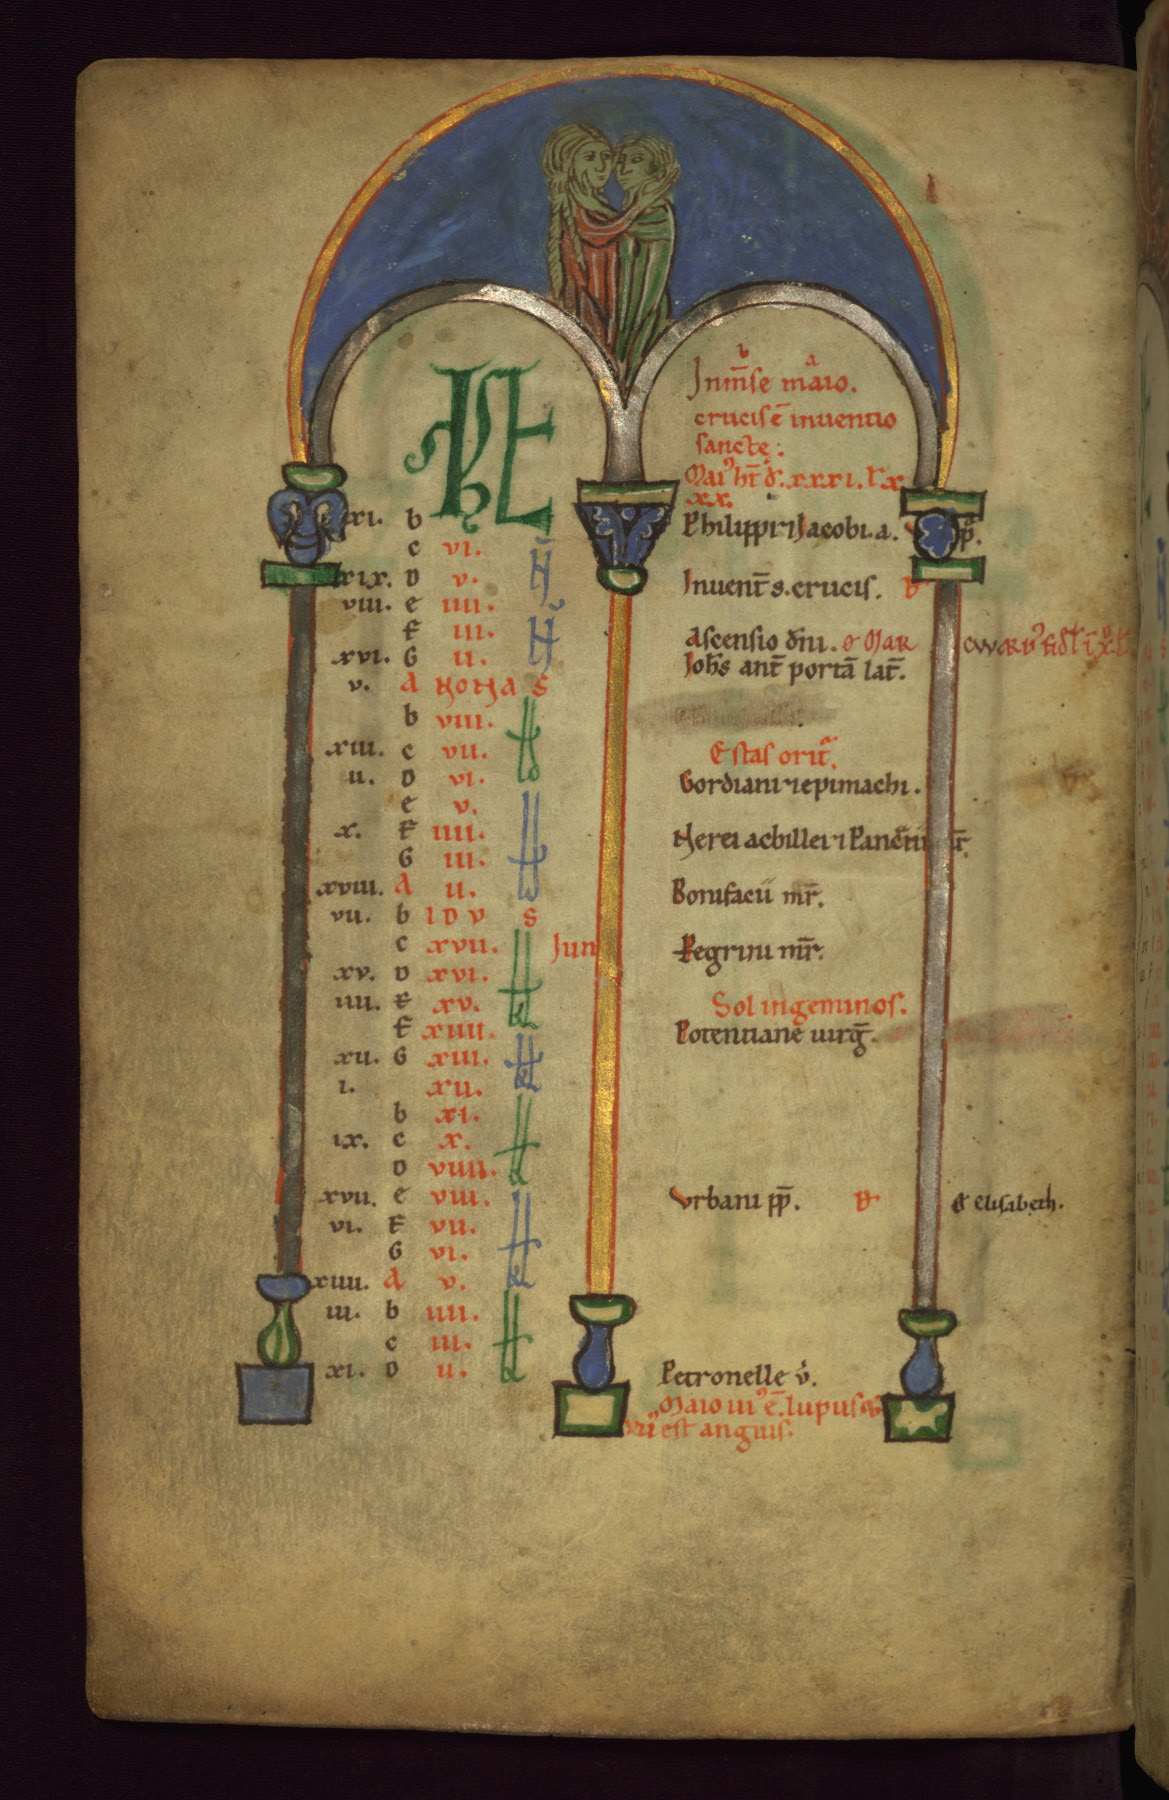 KL
Jn m̄se maio.
crucis ē inuentio
sanctę:
Mai᾽ ht̄ d̄. xxxi. l᾽ x
xx.
xi. b Philippi ⁊ Jacobi. a. p̄.
c vi. N̄
xix. D v. Jnuent̄ s. crucis.
viii. e iiii.
F iii. N̄ Ascensio dn̄i. & Mar
xvi. G ii. Joh̄s ant̄ portā lat̄.
v. A NONA S
b viii. Jd
xiii. c vii. Estas orit᾽.
ii. D vi. Gordiani ⁊ epimachi.
e v.
x. F iiii. Nerei achillei ⁊ Pancrīi
G iii.
xviii. A ii. Bonifacii mr̄.
vii. b IDV S
c xvii. Jun Pegrini mr̄.
xv. D xvi.
iiii. E xv. Sol in geminos.
F xiiii. Potentiane uirḡ.
xii. G xiii.
i. xii.
b xi.
ix. c x.
D viiii.
xvii. e viii. Vrbani pp̄. & Elisabeth.
vi. F vii.
G vi.
xiiii. A v.
iii. b iiii.
c iii.
xi. D ii. Petronelle v̄.
Maio iii᾽ ē. lupus
est anguis.